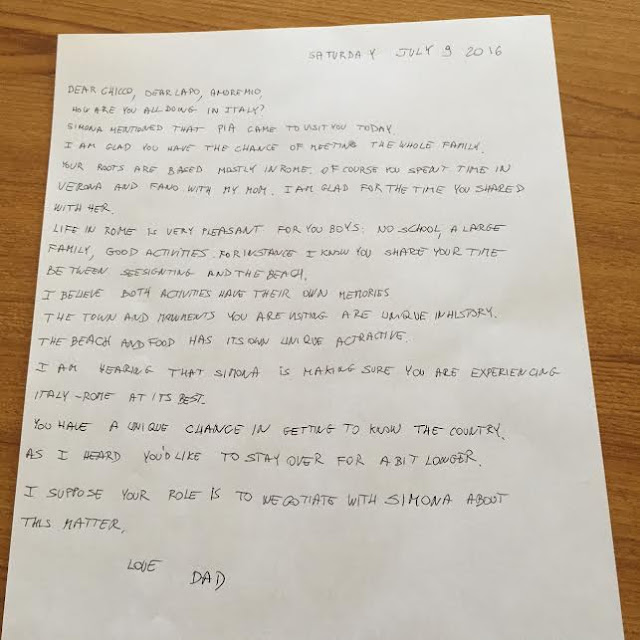 SATURDAY JULY 9 2016
DEAR CHICCO, DEAR LAPO, AMOREMIO,
HOW ARE YOU ALL DOING IN ITALY?
SIMONA MENTIONED THAT PIA CAME TO VISIT YOU TODAY.
I AM GLAD YOU HAVE THE CHANCE OF MEETING THE WHOLE FAMILY.
YOUR ROOTS ARE BASED MOSTLY IN ROME. OF COURSE YOU SPENT TIME IN
VERONA AND FANO WITH MY MOM. I AM GLAD FOR THE TIME YOU SHARED
WITH HER.
LIFE IN ROME IS VERY PLEASANT FOR YOU BOYS: NO SCHOOL, A LARGE
FAMILY, GOOD ACTIVITIES. FOR INSTANCE I KNOW YOU SHARE YOUR TIME
BETWEEN SEESIGNTING AND THE BEACH.
I BELIEVE BOTH ACTIVITIES HAVE THEIR OWN MEMORIES
THE TOWN AND MONUMENTS YOU ARE VISTING ARE UNIQUE IN HISTORY.
THE BEACH AND FOOD HAS ITS OWN UNIQUE ACTRACTIVE.
I AM HEARING THAT SIMONA IS MAKING SURE YOU ARE EXPERIENCING
ITALY - ROME AT ITS BEST.
YOU HAVE A UNIQUE CHANCE IN GETTING TO KNOW THE COUNTRY.
AS I HEARD YOU'D LIKE TO STAY OVER FOR A BIT LONGER.
I SUPPOSE YOUR ROLE IS TO NEGOTIATE WITH SIMONA ABOUT
THIS MATTER.
LOVE
DAD